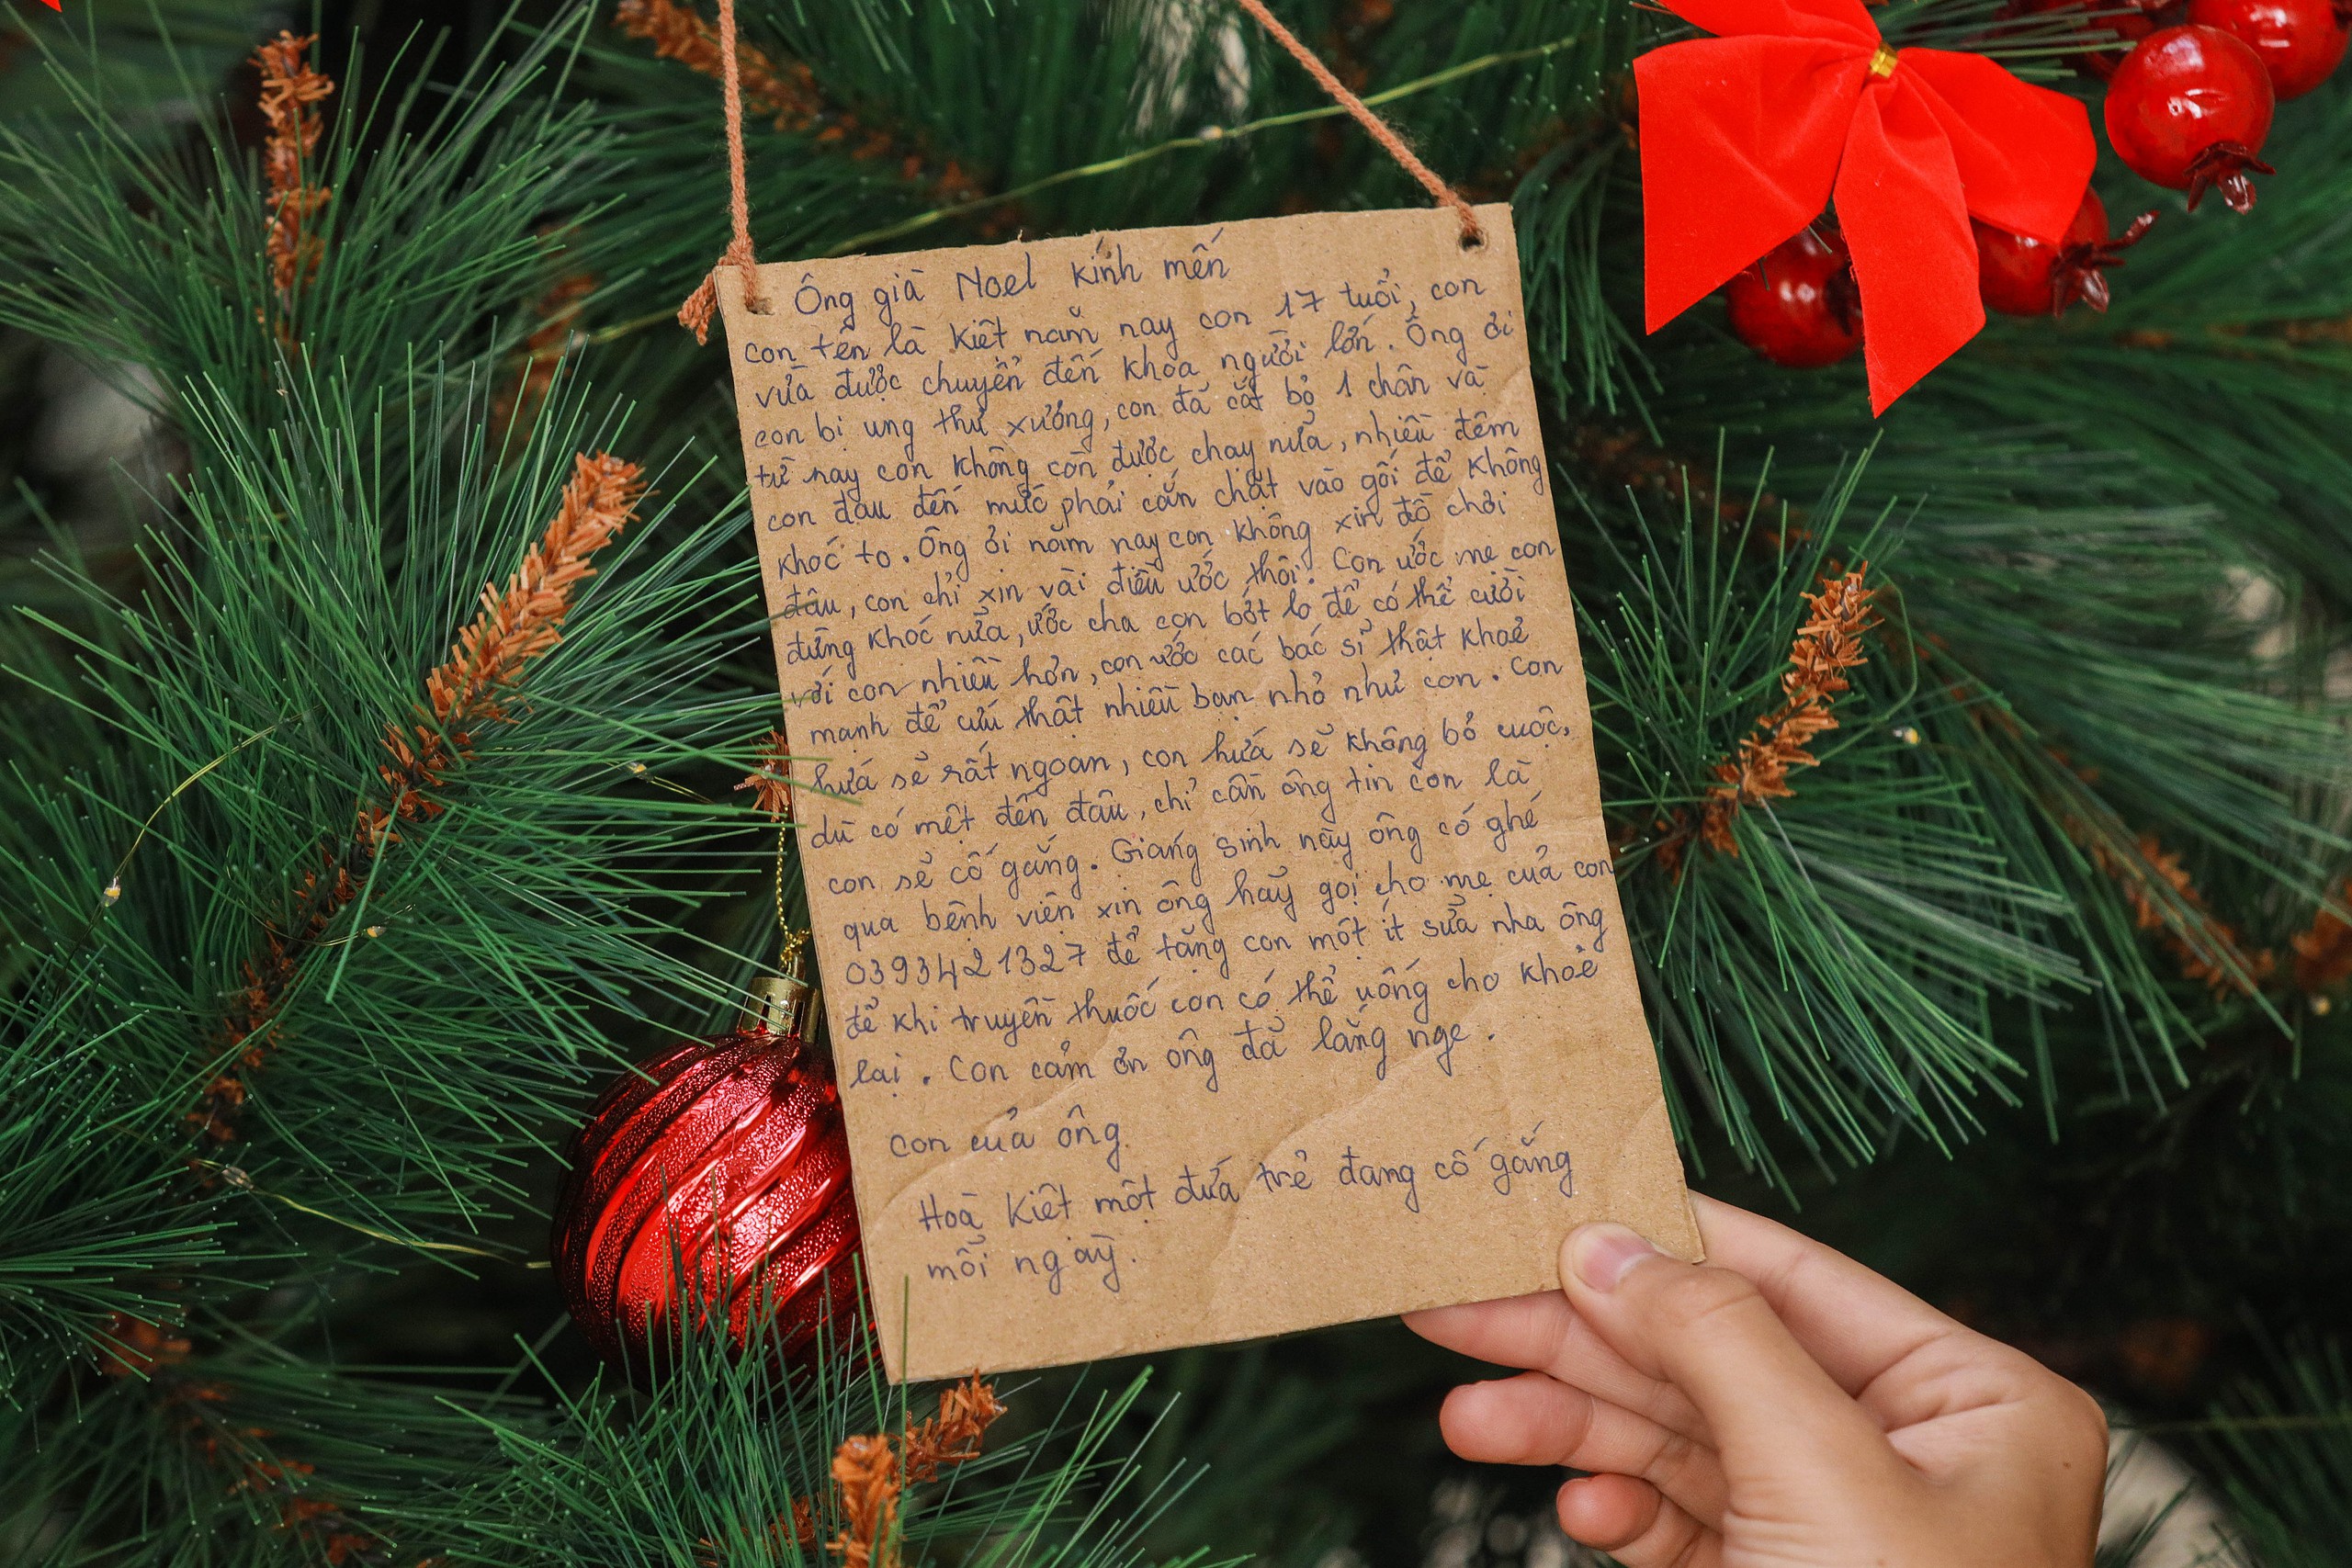 Ông già Noel kính mến
con tên là Kiệt năm nay con 17 tuổi, con
vừa được chuyển đến khoa người lớn. Ông ơi
con bị ung thư xương, con đã cắt bỏ 1 chân và
từ nay con không còn được chạy nửa, nhiều đêm
con đau đến mức phải cắn chặt vào gối để không
khóc to. Ông ơi năm nay con không xin đồ chơi
đâu, con chỉ xin vài điều ước thôi. Con ước mẹ con
đừng khóc nửa, ước cha con bớt lo để có thể cười
với con nhiều hơn, con ước các bác sĩ thật khoẻ
mạnh để cứu thật nhiều bạn nhỏ như con. Con
hứa sẽ rất ngoan, con hứa sẽ không bỏ cuộc,
dù có mệt đến đâu, chỉ cần ông tin con là
con sẽ cố gắng. Giáng sinh này ông có ghé
qua bệnh viện xin ông hãy gọi cho mẹ của con
0393421327 để tặng con một ít sữa nha ông
để khi truyền thuốc con có thể uống cho khoẻ
lại. Con cảm ơn ông đã lắng nge.
con của ông
Hoà Kiệt một đứa trẻ đang cố gắng
mỗi ngày.